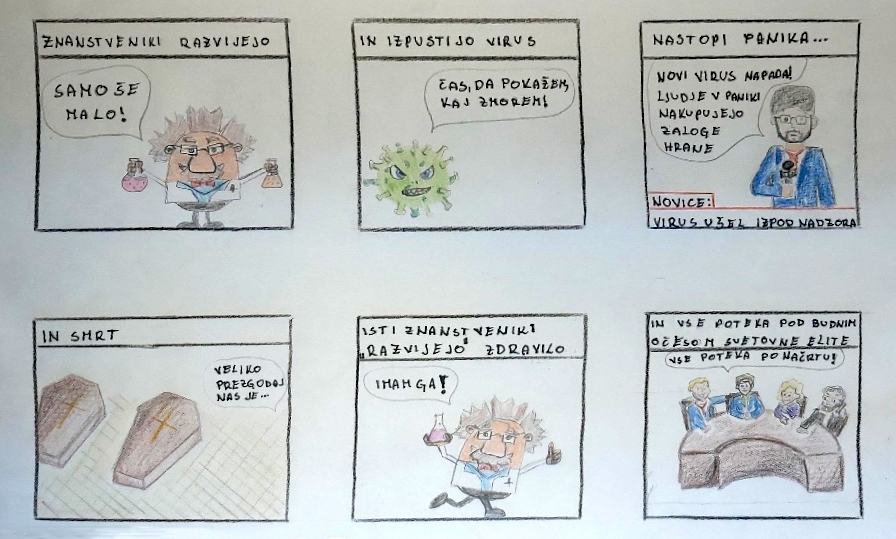 ZNANSTVENIKI RAZVIJEJO
SAMO ŠE
MALO!
IN IZPUSTIJO VIRUS
ČAS, DA POKAŽEM,
KAJ ZMOREM!
NASTOPI PANIKA...
NOVI VIRUS NAPADA!
LJUDJE V PANIKI
NAKUPUJEJO
ZALOGE
HRANE
NOVICE:
VIRUS UŠEL IZPOD NADZORA
IN SMRT
VELIKO
PREZGODAJ
NAS JE...
ISTI ZNANSTVENIKI
„RAZVIJEJO" ZDRAVILO
IMAM GA!
IN VSE POTEKA POD BUDNIM
OČESOM SVETOVNE ELITE
VSE POTEKA PO NAČRTU!